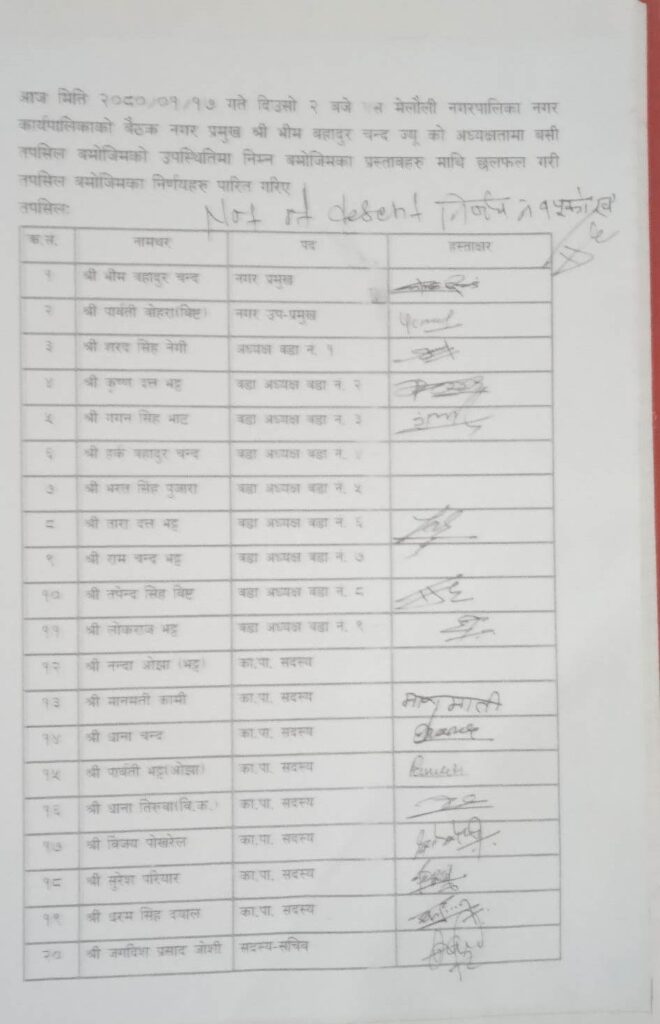 आज मिति २०८०/०१/१७ गते दिउसो २ बजे मेलौली नगरपालिका नगर
कार्यपालिकाको बैठक नगर प्रमुख श्री भीम बहादुर चन्द ज्यू को अध्यक्षतामा बसी
तपसिल बमोजिमको उपस्थितिमा निम्न बमोजिमका प्रस्तावहरु माथि छलफल गरी
तपसिल बमोजिमका निर्णयहरु पारित गरिए
तपसिलः Not of desent निर्णय नं
क्र.स. नामथर पद हस्ताक्षर
१ श्री भीम बहादुर चन्द नगर प्रमुख
२ श्री पार्वती बोहरा(विष्ट) नगर उप-प्रमुख
३ श्री शरद सिंह नेगी अध्यक्ष वडा नं. १
४ श्री कृष्ण दत्त भट्ट वडा अध्यक्ष वडा नं. २
५ श्री गगन सिंह भाट वडा अध्यक्ष वडा नं. ३
६ श्री हर्क बहादुर चन्द वडा अध्यक्ष वडा नं. ४
७ श्री भरत सिंह पुजारा वडा अध्यक्ष वडा नं. ५
८ श्री तारा दत्त भट्ट वडा अध्यक्ष वडा नं. ६
९ श्री राम चन्द भट्ट वडा अध्यक्ष वडा नं. ७
१० श्री नपेन्द्र सिंह विष्ट वडा अध्यक्ष वडा नं. ८
११ श्री लोकराज भट्ट वडा अध्यक्ष वडा नं. ९
१२ श्री नन्दा ओझा (भट्ट) का.पा. सदस्य
१३ श्री मानमती कामी का.पा. सदस्य मान माती
१४ श्री धाना चन्द का.पा. सदस्य
१५ श्री पार्वती भट्ट(ओझा) का.पा. सदस्य
१६ श्री धाना तिरुवा(वि.क.) का.पा. सदस्य
१७ श्री विजय पोखरेल का.पा. सदस्य
१८ श्री सुरेश परियार का.पा. सदस्य
१९ श्री धरम सिंह दयाल का.पा. सदस्य
२० श्री जगदिश प्रसाद जोशी सदस्य-सचिव